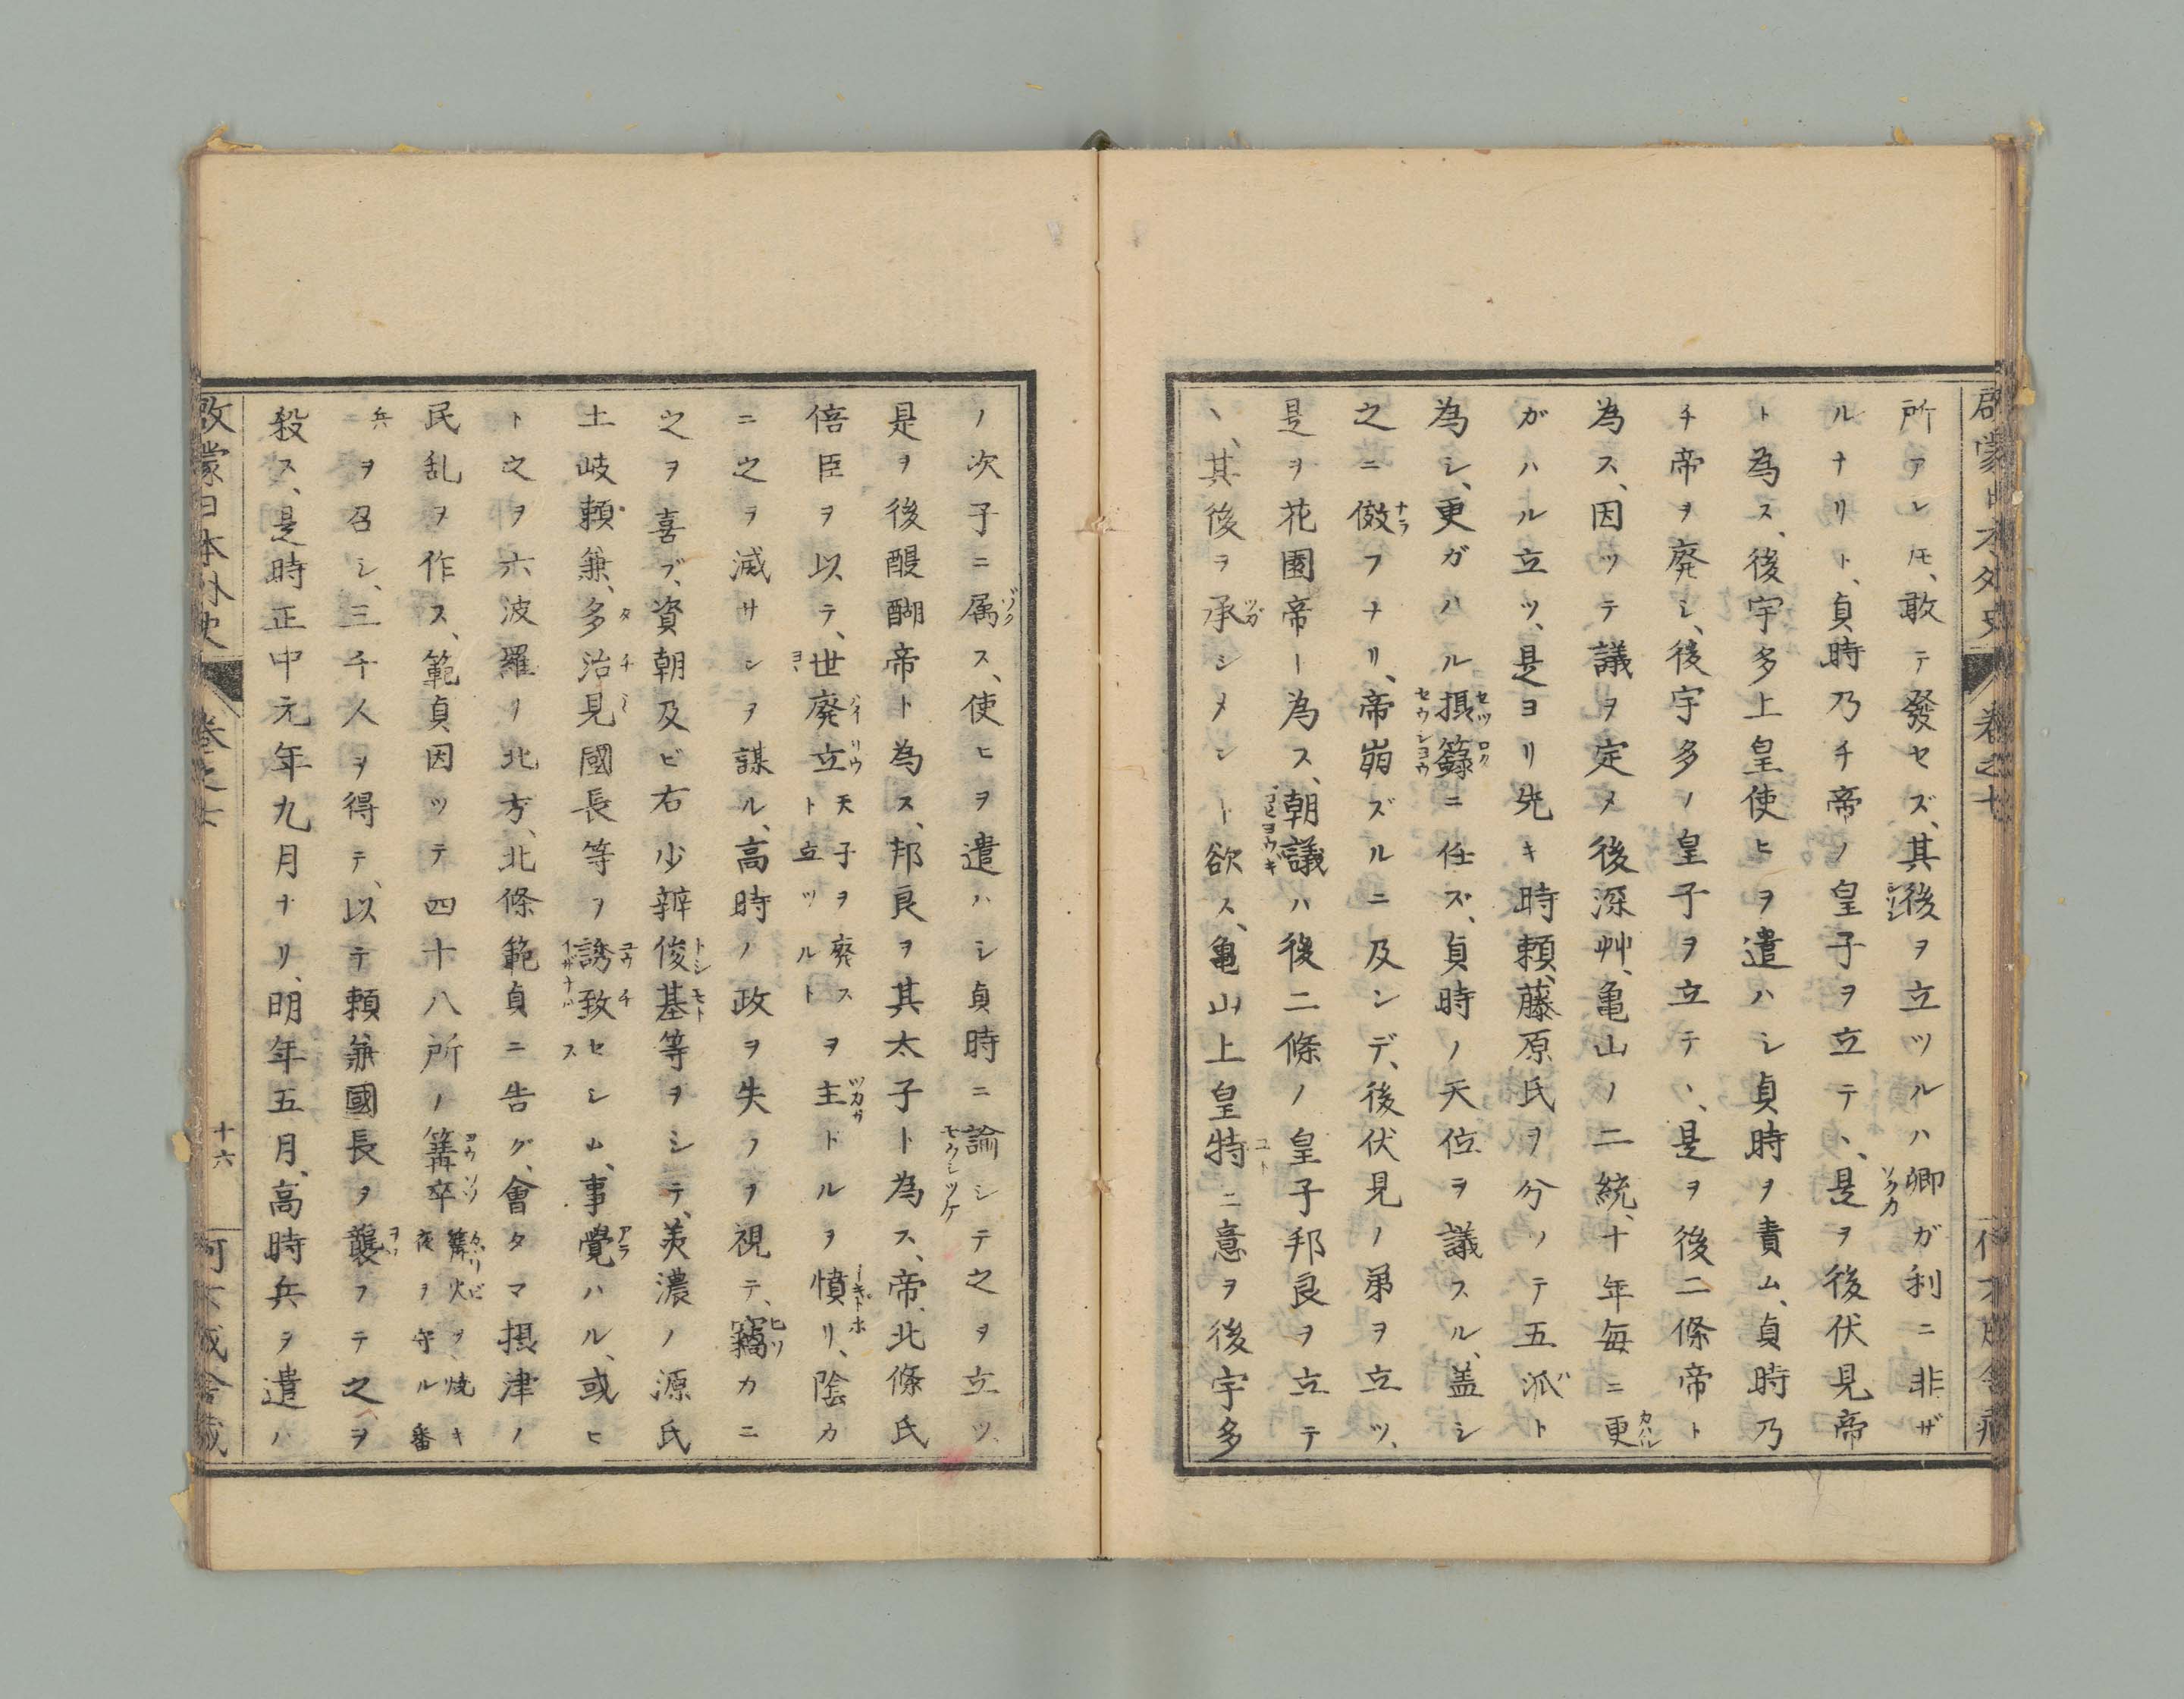 啓蒙日本外史
所アレモ、敢テ發セズ、其後ヲ立ツルハ卿ガ利ニ非ザ
ルナリト、貞時乃チ帝ノ皇子ヲ立テヽ、是ヲ後伏見帝
ト為ス、後宇多上皇使ヒヲ遣ハシ貞時ヲ責ム、貞時乃
チ帝ヲ廃シ、後宇多ノ皇子ヲ立テヽ、是ヲ後二條帝ト
為ス、因ツテ議ヲ定メ後深艸、亀山ノ二統、十年毎ニ更
ガハル立ツ、是ヨリ先キ時頼、藤原氏ヲ分ノテ五派ト
為シ、更ガハル摂籙ニ任ズ、貞時ノ天位ヲ議スル、蓋シ
之ニ倣フナリ、帝崩ズルニ及ンデ、後伏見ノ弟ヲ立ツ、
是ヲ花園帝ト為ス、朝議ハ後二條ノ皇子邦良ヲ立テ
ヽ、其後ヲ承シメント欲ス、亀山上皇特ニ意ヲ後宇多
ノ次子ニ属ス、使ヒヲ遣ハシ貞時ニ論シテ之ヲ立ツ、
是ヲ後醍醐帝ト為ス、邦良ヲ其太子ト為ス、帝、北條氏
倍臣ヲ以テ、世廃立天子ヲ廃スト立ツルトヲ主ドルヲ憤リ、陰カ
ニ之ヲ滅サンヲ謀ル、高時ノ政ヲ失フヲ視テ、竊カニ
之ヲ喜ブ、資朝及ビ右少辨俊基等ヲシテ、美濃ノ源氏
土岐頼兼、多治見國長等ヲ誘致セシム、事覺ハル、或ヒ
ト之ヲ六波羅ノ北方、北條範貞ニ告グ、會タマ摂津ノ
民乱ヲ作ス、範貞因ツテ四十八所ノ篝卒篝火ヲ焼キ夜ヲ守ル番
兵ヲ召シ、三千人ヲ得テ、以テ頼兼國長ヲ襲フテ之ヲ
殺ス、是時正中元年九月ナリ、明年五月、高時兵ヲ遣ハ
啓蒙日本外史
十六